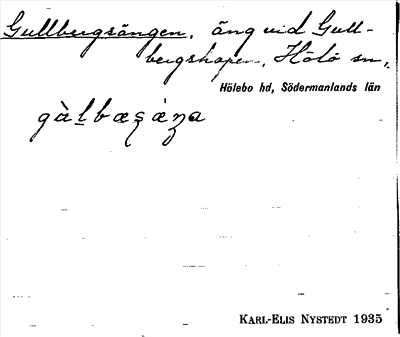 Gullbergsängen, äng vid Gull-
bergshagen, Hölö sn,
Hölebo hd, Södermanlands län
gàḻbæȿáŋa
KARL-ELIS NYSTEDT 1935